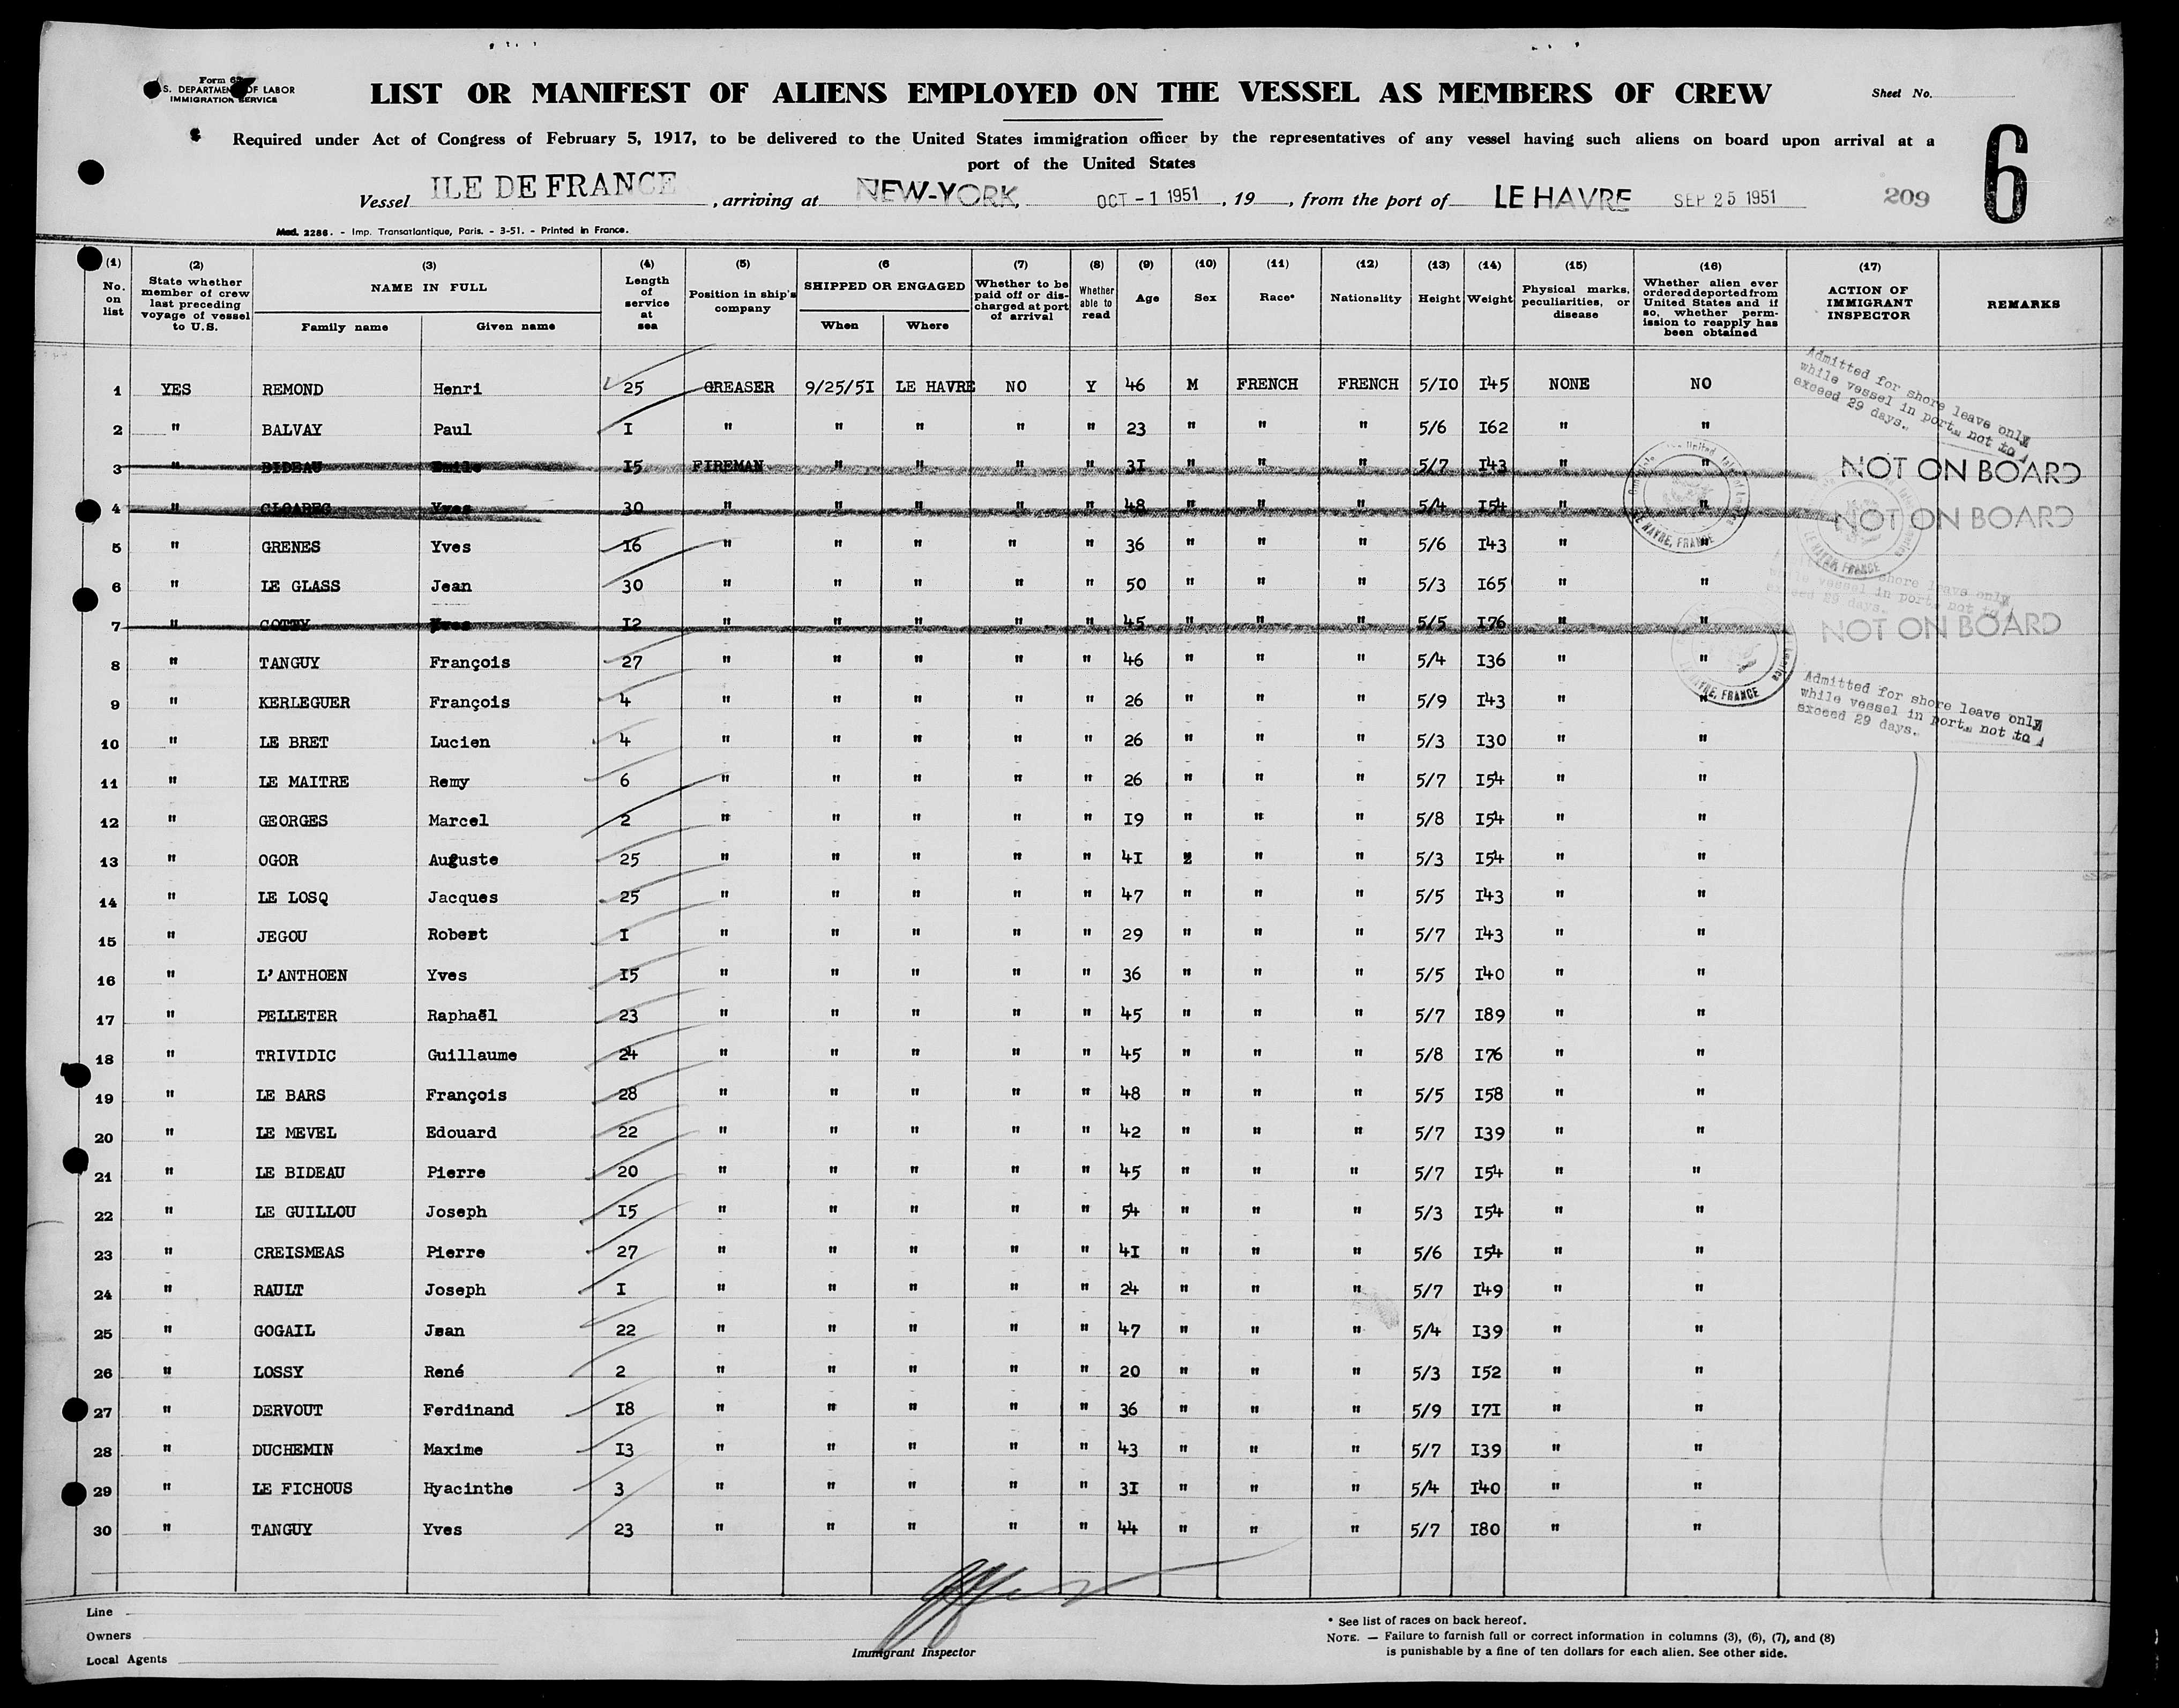 Form 6
S. DEPARTMENT OF LABOR
IMMIGRATION SERVICE
LIST OR MANIFEST OF ALIENS EMPLOYED ON THE VESSEL AS MEMBERS OF CREW
Sheet No.
Required under Act of Congress of February 5, 1917, to be delivered to the United States immigration officer by the representatives of any vessel having such aliens on board upon arrival at a
port of the United States
6
Vessel ILE DE FRANCE, arriving at NEW-YORK, OCT - 1 1951, 19, from the port of LE HAVRE SEP 25 1951 209
Mod. 2286. - Imp. Transatlantique, Paris. - 3-51. - Printed in France.
(1) No. on list
(2) State whether member of crew last preceding voyage of vessel to U.S.
(3) NAME IN FULL Family name Given name
(4) Length of service at sea
(5) Position in ship's company
(6 SHIPPED OR ENGAGED When Where
(7) Whether to be paid off or discharged at port of arrival
(8) Whether able to read
(9) Age
(10) Sex
(11) Race*
(12) Nationality
(13) Height
(14) Weight
(15) Physical marks, peculiarities, or disease
(16) Whether alien ever ordered deported from United States and if so, whether permission to reapply has been obtained
(17) ACTION OF IMMIGRANT INSPECTOR
REMARKS
1 YES REMOND Henri 25 GREASER 9/25/5I LE HAVRE NO Y 46 M FRENCH FRENCH 5/IO I45 NONE NO
Admitted for shore leave only
while vessel in port, not to
exceed 29 days.
2 " BALVAY Paul I " " " " " 23 " " " 5/6 I62 " "
3 " BIDEAU Emile I5 FIREMAN " " " " 3I " " " 5/7 I43 " " NOT ON BOARD
4 " CLOAREG Yves 30 " " " " " 48 " " " 5/4 I54 " " NOT ON BOARD
5 " GRENES Yves I6 " " " " " 36 " " " 5/6 I43 " "
LE HAVRE, FRANCE
LE HAVRE, FRANCE
6 " LE GLASS Jean 30 " " " " " 50 " " " 5/3 I65 " "
shore leave only
while vessel in port, not to
exceed 29 days.
7 " COTTY Yves I2 " " " " " 45 " " " 5/5 I76 " " NOT ON BOARD
8 " TANGUY François 27 " " " " " 46 " " " 5/4 I36 " "
9 " KERLEGUER François 4 " " " " " 26 " " " 5/9 I43 " "
HAVRE, FRANCE
Admitted for shore leave only
while vessel in port, not to
exceed 29 days.
10 " LE BRET Lucien 4 " " " " " 26 " " " 5/3 I30 " "
11 " LE MAITRE Remy 6 " " " " " 26 " " " 5/7 I54 " "
12 " GEORGES Marcel 2 " " " " " I9 " " " 5/8 I54 " "
13 " OGOR Auguste 25 " " " " " 4I " " " 5/3 I54 " "
14 " LE LOSQ Jacques 25 " " " " " 47 " " " 5/5 I43 " "
15 " JEGOU Robert I " " " " " 29 " " " 5/7 I43 " "
16 " L'ANTHOEN Yves I5 " " " " " 36 " " " 5/5 I40 " "
17 " PELLETER Raphaël 23 " " " " " 45 " " " 5/7 I89 " "
18 " TRIVIDIC Guillaume 24 " " " " " 45 " " " 5/8 I76 " "
19 " LE BARS François 28 " " " " " 48 " " " 5/5 I58 " "
20 " LE MEVEL Edouard 22 " " " " " 42 " " " 5/7 I39 " "
21 " LE BIDEAU Pierre 20 " " " " " 45 " " " 5/7 I54 " "
22 " LE GUILLOU Joseph I5 " " " " " 54 " " " 5/3 I54 " "
23 " CREISMEAS Pierre 27 " " " " " 4I " " " 5/6 I54 " "
24 " RAULT Joseph I " " " " " 24 " " " 5/7 I49 " "
25 " GOGAIL Jean 22 " " " " " 47 " " " 5/4 I39 " "
26 " LOSSY René 2 " " " " " 20 " " " 5/3 I52 " "
27 " DERVOUT Ferdinand I8 " " " " " 36 " " " 5/9 I7I " "
28 " DUCHEMIN Maxime I3 " " " " " 43 " " " 5/7 I39 " "
29 " LE FICHOUS Hyacinthe 3 " " " " " 3I " " " 5/4 I40 " "
30 " TANGUY Yves 23 " " " " " 44 " " " 5/7 I80 " "
Line
Owners
Local Agents
Immigrant Inspector
* See list of races on back hereof.
NOTE. — Failure to furnish full or correct information in columns (3), (6), (7), and (8)
is punishable by a fine of ten dollars for each alien. See other side.